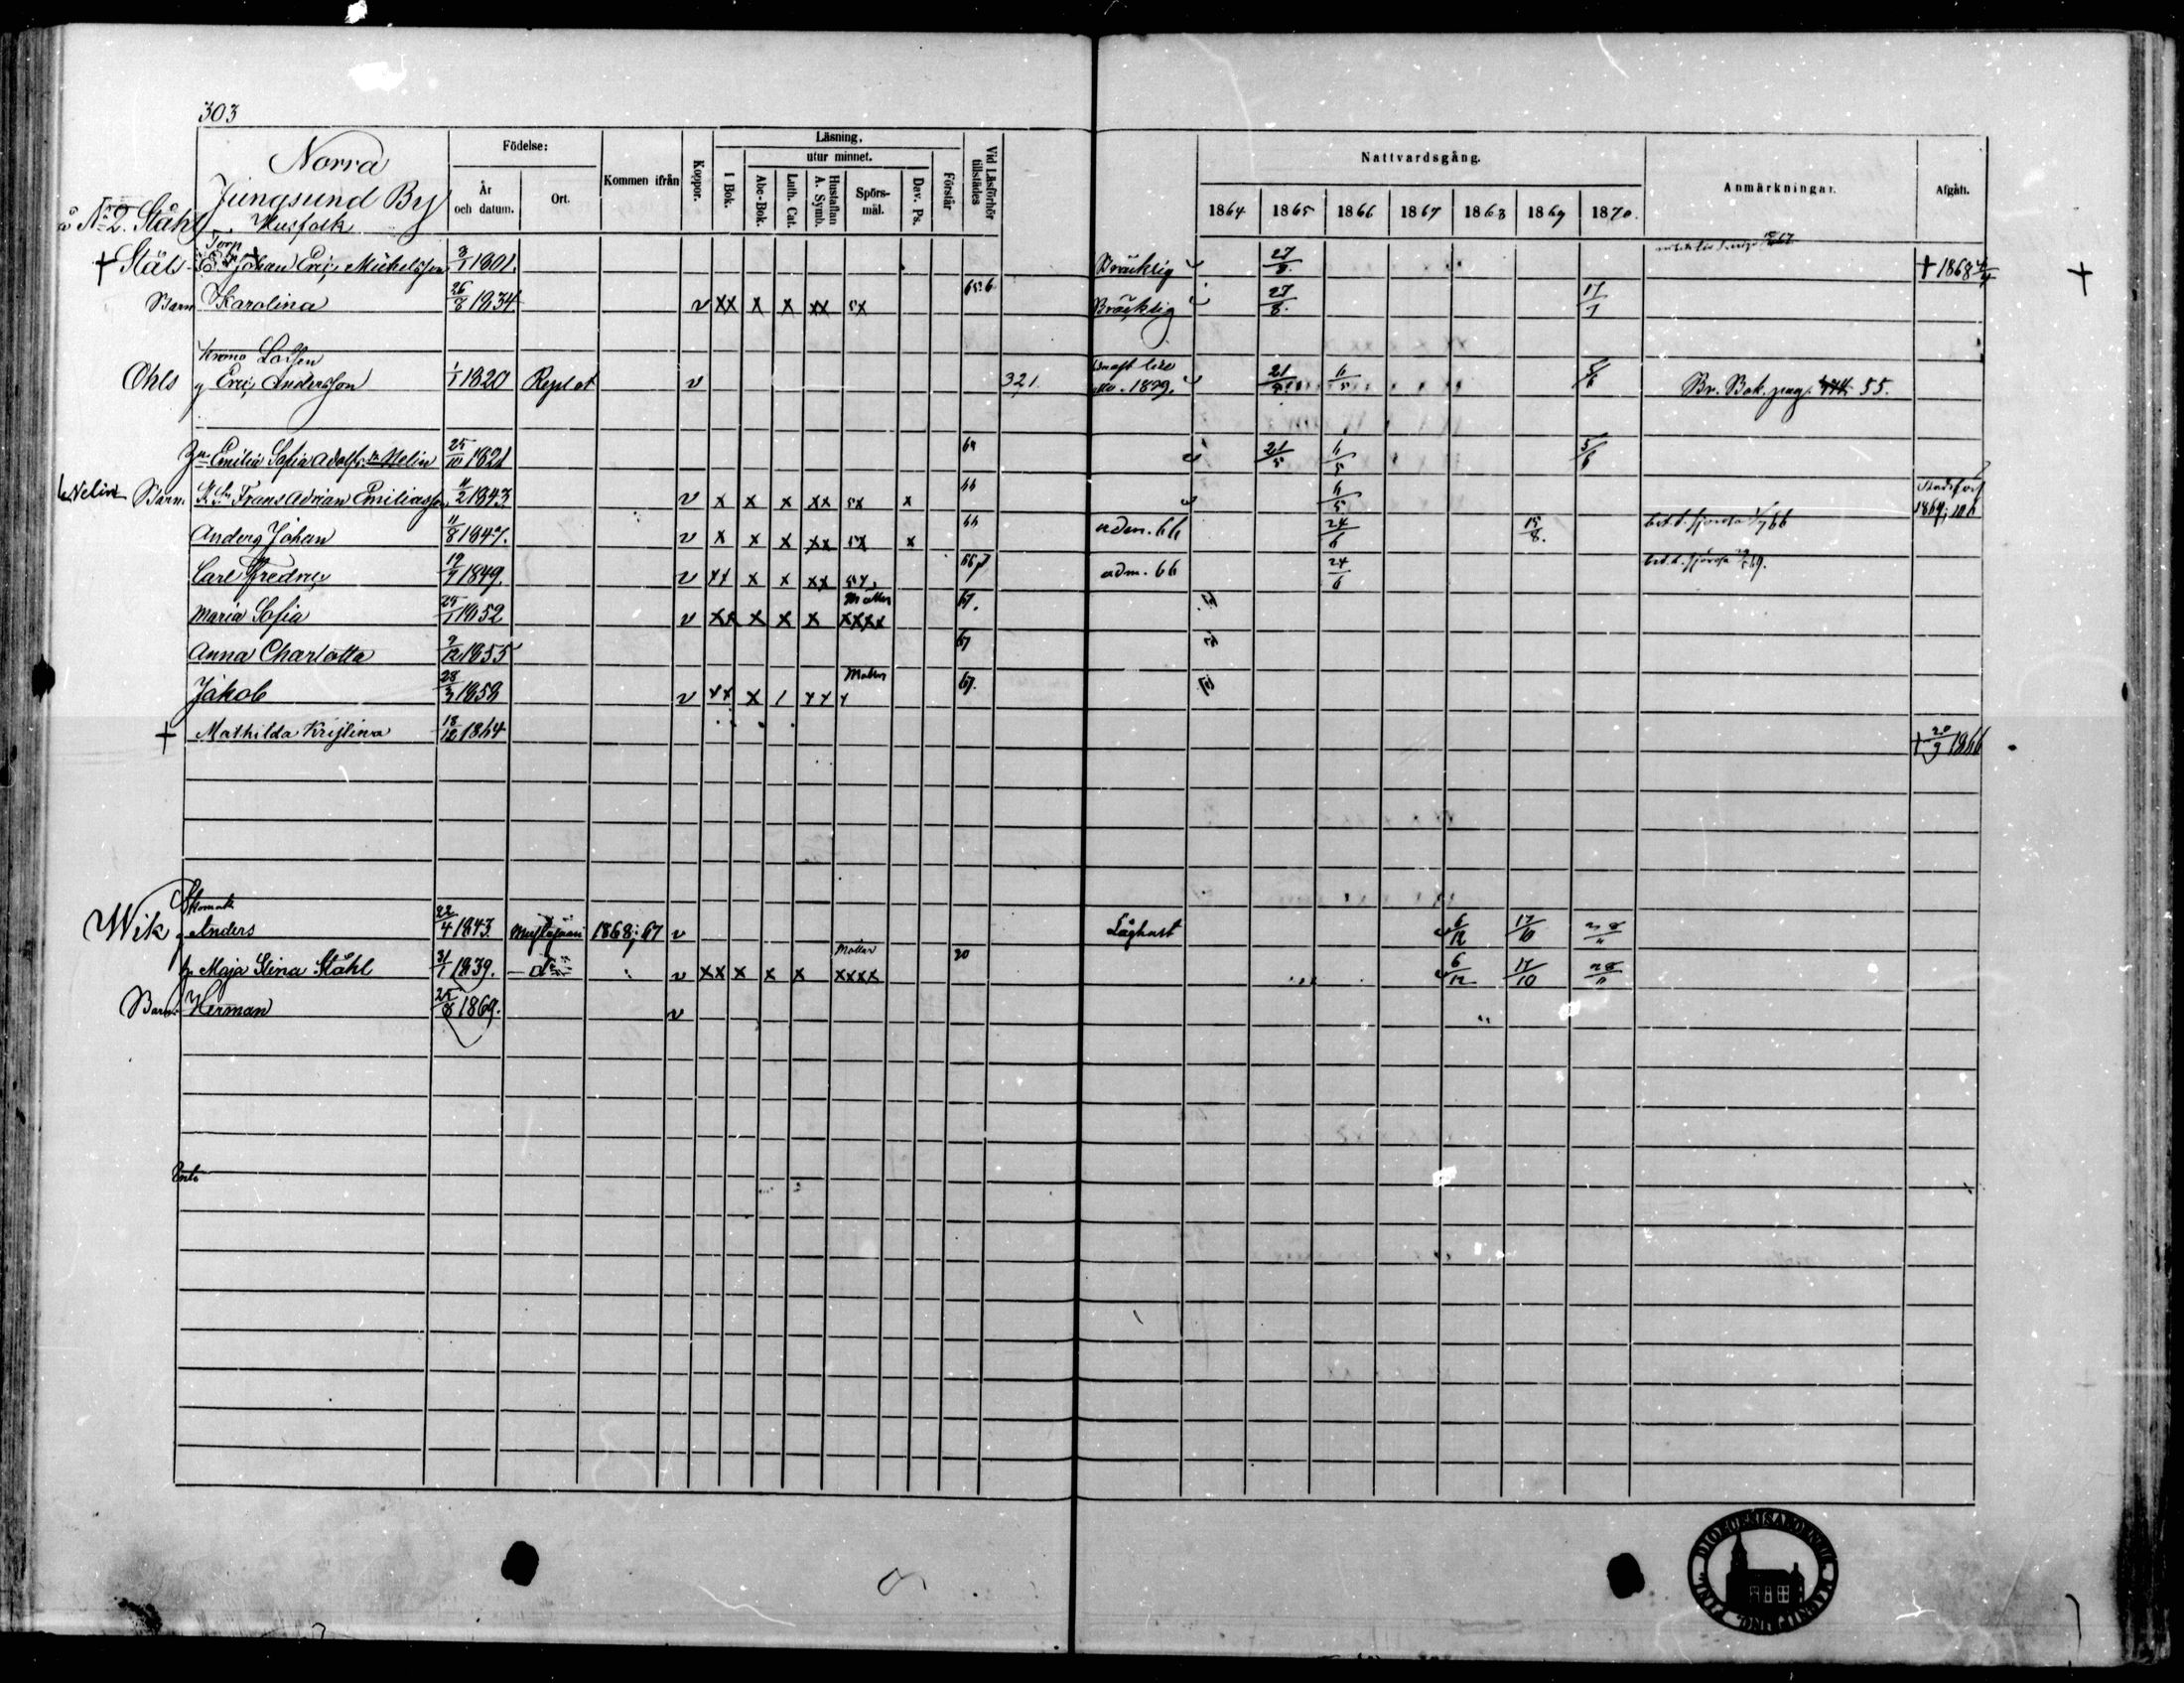 303
Norra
Jungsund By
å No 2. Ståhl
Husfolk
Födelse:
År och datum.
Ort.
Kommen ifrån
Koppor.
Läsning.
utur minnet.
I Bok.
Abc-Bok.
Luth. Cat.
Hustaflan A. Symb.
Spörsmål.
Dav. Ps.
Förstår
Vid Läsförhör tillstädes
Nattvardsgång.
1864 1865 1866 1867 1868 1869 1870.
Anmärkningar.
Afgått.
Torp
† Ståls Johan Eric Michelsson 3/1 1801. Bräcklig 27/8. † 1868 4/4 †
Barn Karolina 26/8 1834 v xx x x xx 5x 65.6 Bräcklig 27/8. 17/7
Krono Lotsen
Ohls g Eric Andersson 1/1 1820 Replot v 321. 1829. 21/5 6/5 5/6 Br. Bok. pag. 55.
hu Emilia Sofia Adolfs. Velin 25/10 1821 64 21/5 6/5 5/6
Velin Barn Frans Adrian Emiliasson 11/2 1843 v x x x xx 5x x 66 6/5 1869; 106
Anders Johan 11/8 1847. v x x x xx 5x x 66 adm. 66 24/6 15/8. bet. t. sjöresa 1/7 66
Carl Fredric 19/9 1849. v xx x x xx 5x. 66 adm. 66 24/6 bet. t. sjöresa 69.
Maria Sofia 25/1 1852 v xx x x x xxxx 67.
Anna Charlotta 9/12 1855 67
Jakob 28/3 1858 v xx x / xx x 67.
† Mathilda Kristina 18/12 1864 † 20/9 1866
Skomak.
Wik g Anders 22/4 1843. Mustasaari 1868; 67 v Låghalt 6/12 17/10
h Maja Stina Ståhl 31/1 1839. v xx x x x xxxx 70 6/12 17/10
Barn. Herman 25/8 1869. v